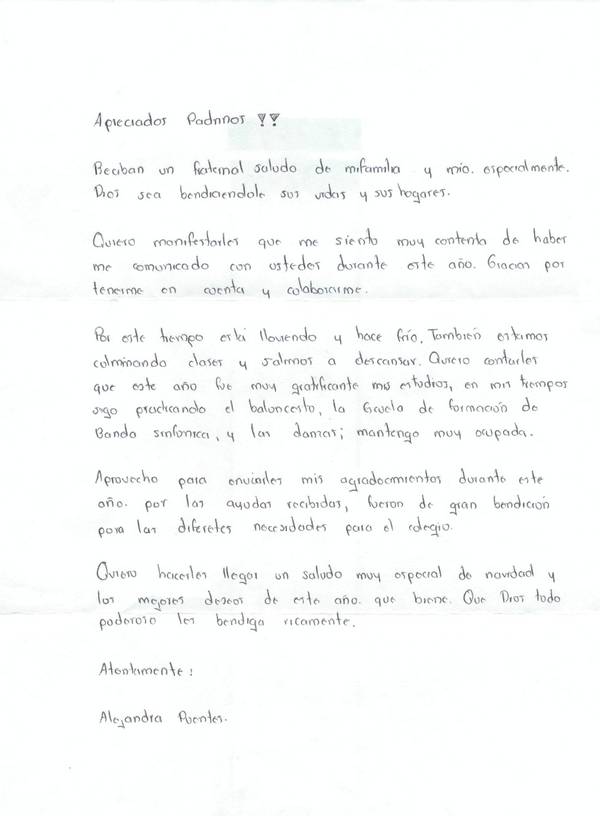 Apreciados Padrinos !!
Reciban un fraternal saludo de mifamilia y mio. especialmente.
Dios sea bendiciendole sus vidas y sus hogares.
Quiero manifestarles que me siento muy contenta de haber
me comunicado con ustedes durante este año. Gracias por
tenerme en cuenta y colaborarme.
Por este tiempo está lloviendo y hace frío. También estamos
culminando clases y salimos a descansar. Quiero contarles
que este año fue muy gratificante mis estudios, en mis tiempos
sigo practicando el baloncesto, la Escuela de formación de
Banda sinfonica, y las danzas; mantengo muy ocupada.
Aprovecho para enviarles mis agradecimientos durante este
año. por las ayudas recibidas, fueron de gran bendición
para las diferetes necesidades para el colegio.
Quiero hacerles llegar un saludo muy especial de navidad y
los mejores deseos de este año. que biene. Que Dios todo
poderoso les bendiga ricamente.
Atentamente:
Alejandra Puentes.